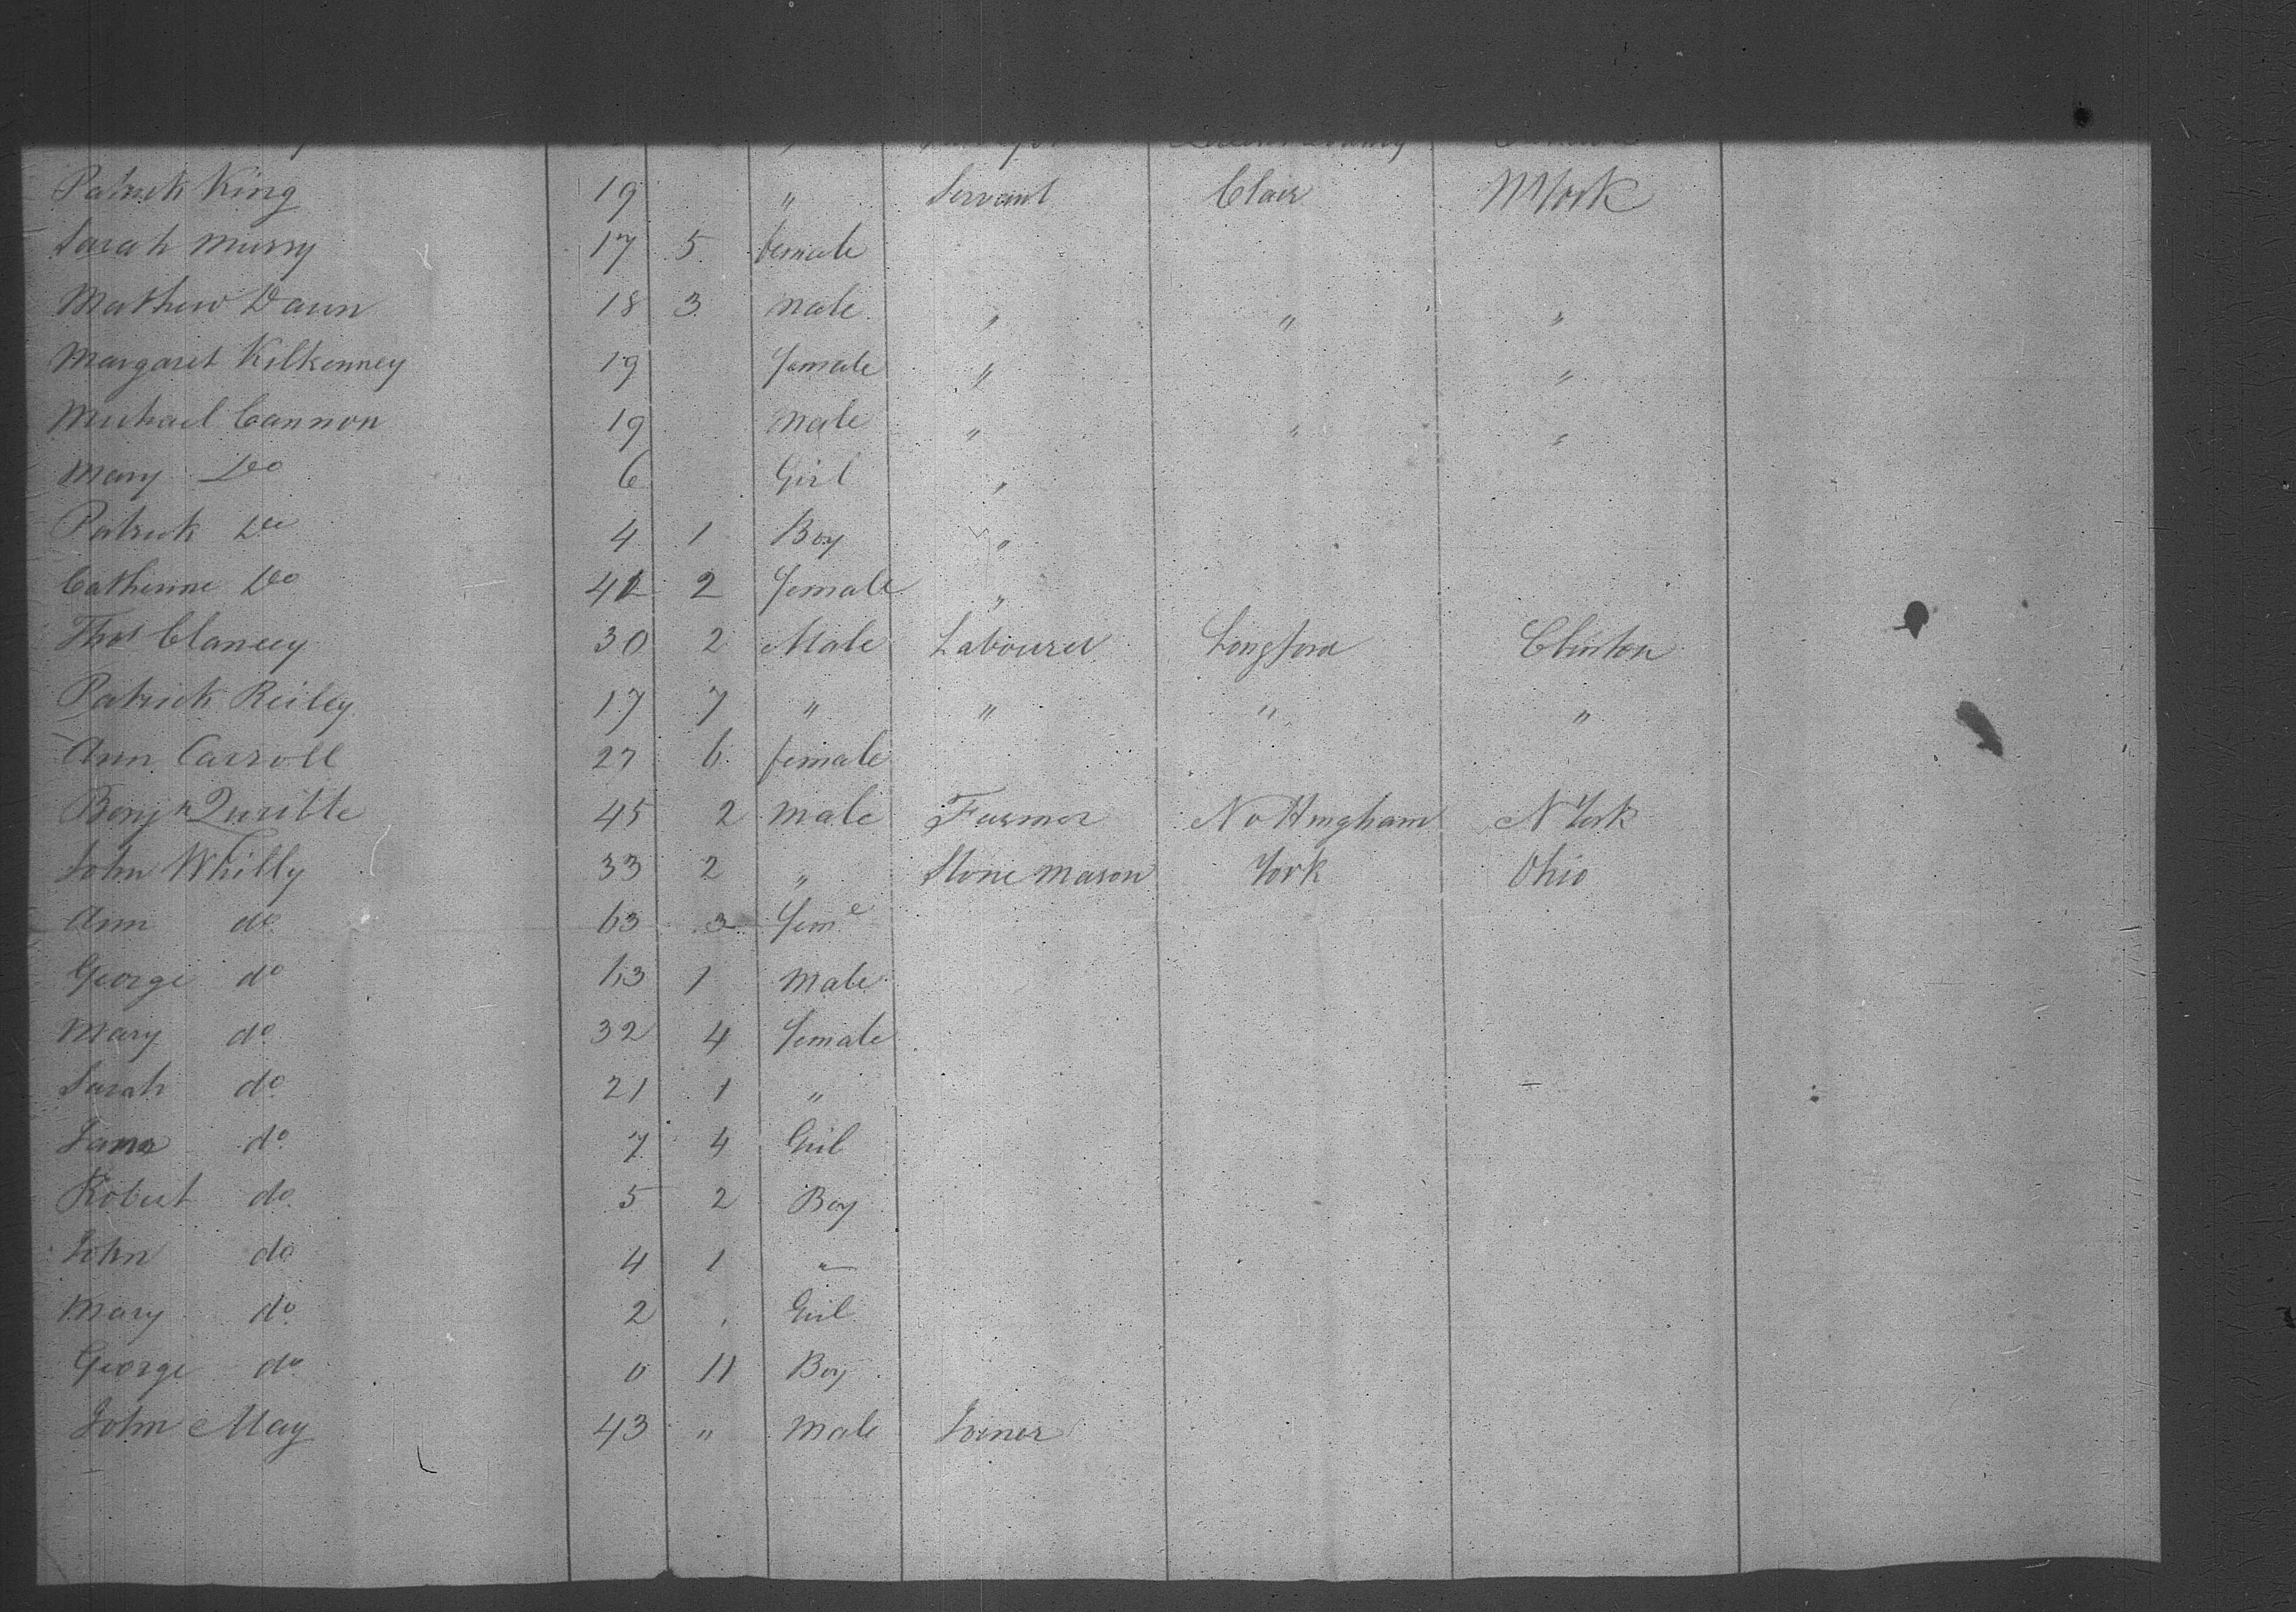 Patrick King 19 " Servant Clair N York
Sarah Murry 17 5 female
Mathew Daun 18 3 male " " "
Margaret Kilkenney 19 female " "
Michael Cannon 19 male " " "
Mary Do 6 Girl "
Patrick Do 4 1 Boy "
Catherine Do 42 2 female "
Thos Clancey 30 2 Male Labourer Longford Clinton
Patrick Reiley 17 7 " " " "
Ann Carroll 27 6 female
Benjn 45 2 male Farmer Nottingham N York
John Whilly 33 2 " Stone mason York Ohio
Ann do 63 3 feme
George do 63 1 male
Mary do 32 4 female
Sarah do 21 1 "
do 7 4 Girl
Robert do 5 2 Boy
John do 4 1 "
Mary do 2 Girl
George do 0 11 Boy
John May 43 " male Joiner